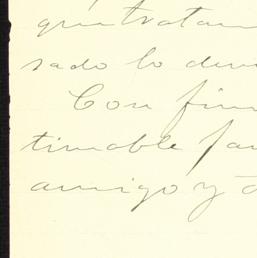 que tratam
sado lo dem
Con fin
timable fa
amigo y